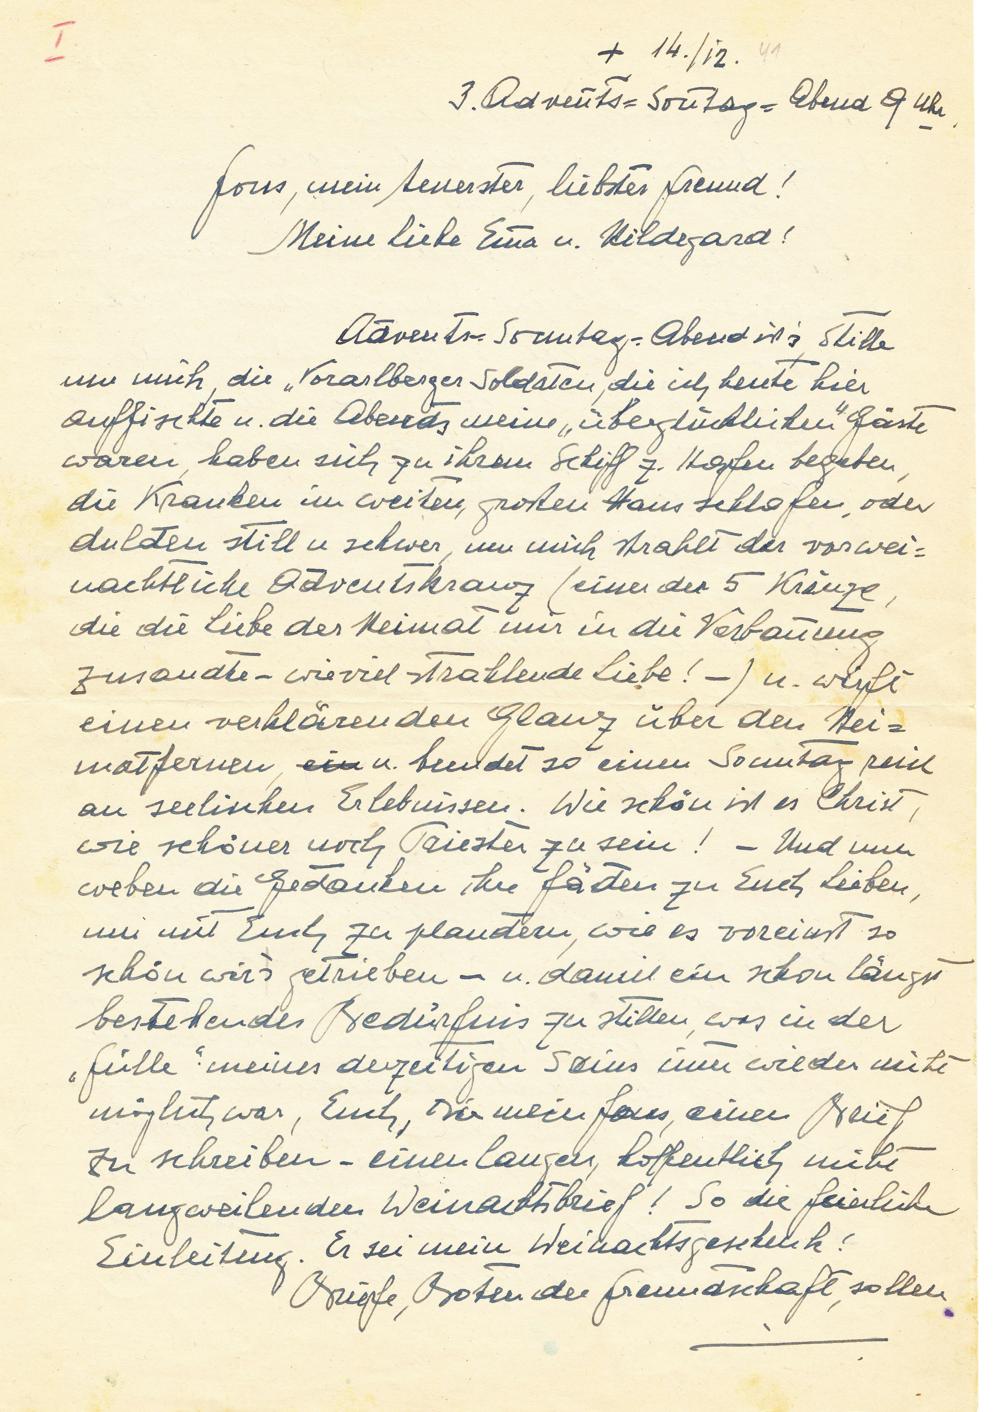 I
+ 14./12. 41
3. Advents=Sontag=Abend 9 Uhr.
Fons, mein teuerster, liebster Freund!
Meine liebe Ema u. Hildegard!
Advents=Sonntag=Abend ist's, Stille
um mich, die „Vorarlberger Soldaten, die ich heute hier
auffischte u. die Abends meine „überglücklichen" Gäste
waren, haben sich zu ihrem Schiff z. Hafen begeben,
die Kranken im weiten, großen Haus schlafen, oder
dulden still u schwer, um mich strahlt der vorwei=
nachtliche Adventskranz (einer der 5 Kränze,
die die Liebe der Heimat mir in die Verbannung
zusandte – wieviel strahlende Liebe! –) u. wirft
einen verklärenden Glanz über den Hei=
matfernen, ein u. beendet so einen Sonntag reich
an seelischen Erlebnissen. Wie schön ist es Christ,
wie schöner noch Priester zu sein! – Und nun
weben die Gedanken ihre Fäden zu Euch Lieben,
um mit Euch zu plaudern, wie es voreinst so
schön wir's getrieben – u. damit ein schon längst
bestehendes Bedürfnis zu stillen, was in der
„Fülle" meines derzeitigen Seins imer wieder nicht
möglich war, Euch, Dir mein Fons, einen Brief
zu schreiben – einen langen, hoffentlich nicht
langweilenden Weinachtsbrief! So die feierliche
Einleitung. Er sei mein Weinachtsgeschenk!
Briefe, Boten der Freundschaft, sollen